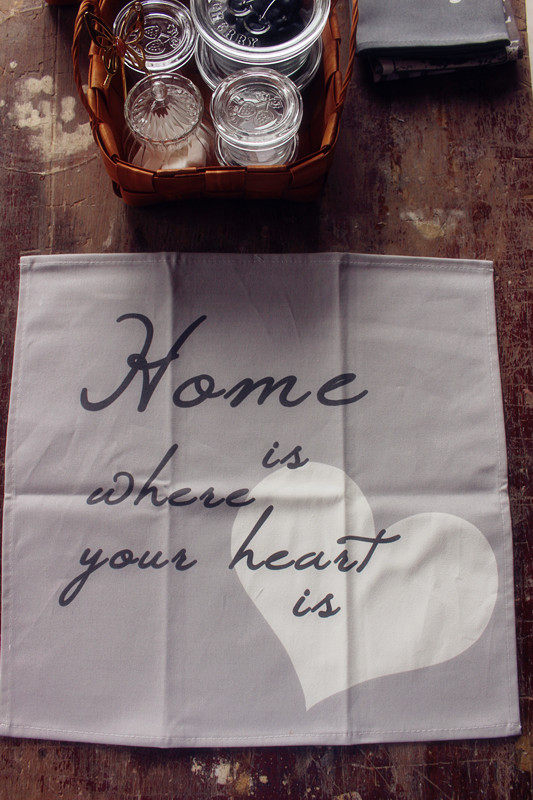 CHERRY
Home
is
where
your heart
is